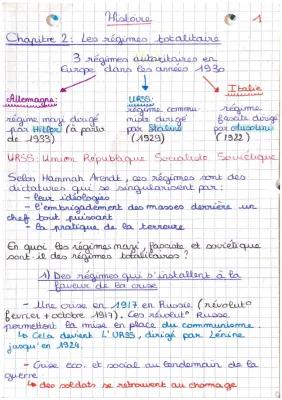 Histoire
1
Chapitre 2: Les régimes totalitaire
3 régimes autoritaires en
Europe dans les années 1930
Allemagne: URSS: Italie
régime nazi dirigé
par Hitler (à partir
de 1933)
régime commu-
niste dirigé
par Staline
(1929)
régime
fasciste dirigé
par Mussolini
(1922)
URSS: Union République Socialiste Soviétique
Selon Hannah Arendt, ces régimes sont des
dictatures qui se singularisent par:
- leur idéologies
- l'embrigadement des masses derrière un
chef tout puissant
- la pratique de la terreure
En quoi les régimes nazi, fasciste et soviétique
sont-il des régimes totalitaires ?
1) Des régimes qui s'installent à la
faveur de la crise
- Une crise en 1917 en Russie (révolut°
février + octobre 1917). Ces révolut° Russe
permettent la mise en place du communisme.
↳ Cela devient L'URSS, dirigé par Lénine
jusqu'en 1924.
- Crise eco. et social au lendemain de la
guerre
↳ des soldats se retrouvent au chomage